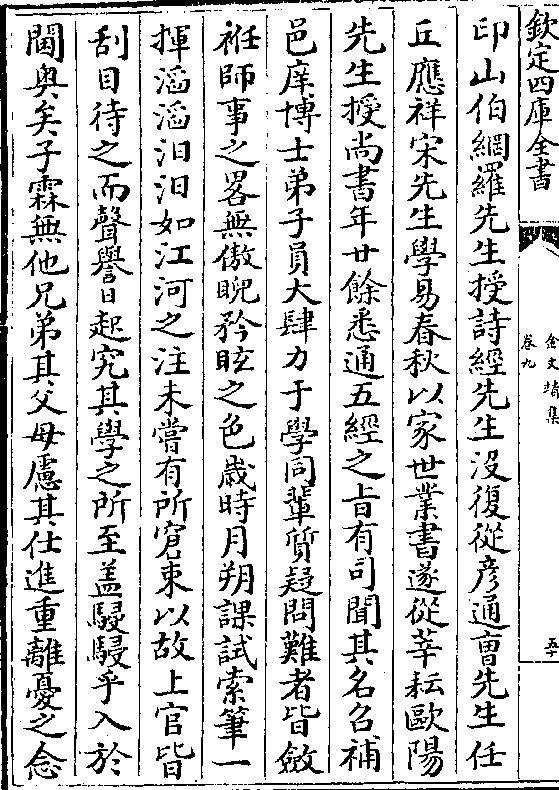 欽定四庫全書
金文靖集
卷九
五十
印山伯網羅先生授詩經先生沒復從彦通曺先生任
丘應祥宋先生學易春秋以家世業書遂從莘耘歐陽
先生授尚書年廿餘悉通五經之旨有司聞其名召補
邑庠博士弟子員大肆力于學同輩質疑問難者皆斂
袵師事之畧無傲睨矜眩之色歳時月朔課試索筆一
揮滔滔汩汩如江河之注未嘗有所窘束以故上官皆
刮目待之而聲譽日起究其學之所至盖駸駸乎入於
閫奥矣子霖無他兄弟其父母慮其仕進重離憂之念